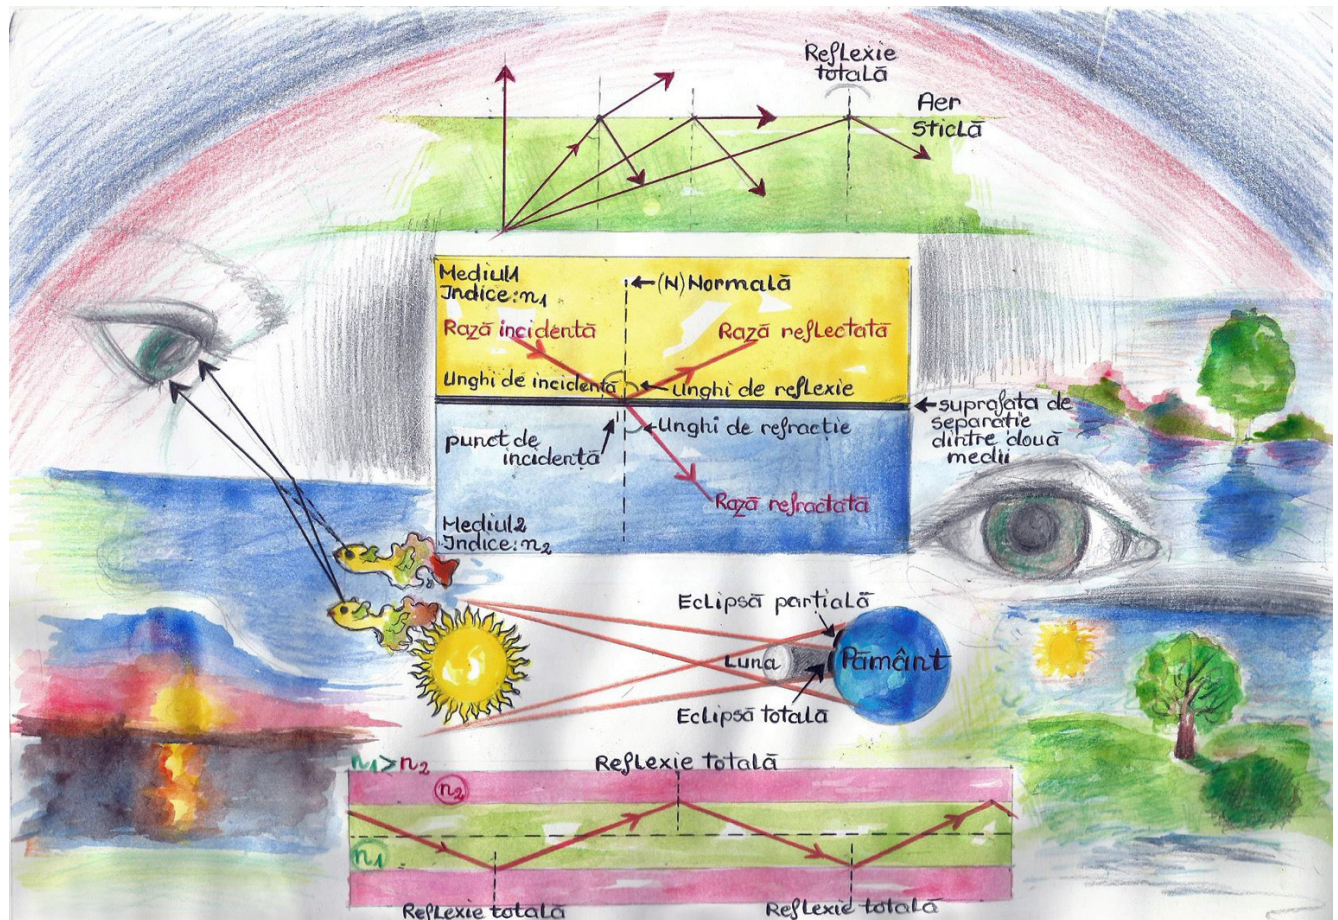 Reflexie
totală
Aer
Sticlă
Mediul1
Indice:n₁
←(N)Normală
Rază incidentă
Rază reflectată
Unghi de incidență
Unghi de reflexie
suprafata de
separatie
dintre două
medii
punct de
incidență
Unghi de refractie
Rază refractată
Mediul2
Indice:n₂
Eclipsă parțială
Luna
Pământ
Eclipsă totală
n₁>n₂
Reflexie totală
n₂
n₁
Reflexie totală
Reflexie totală